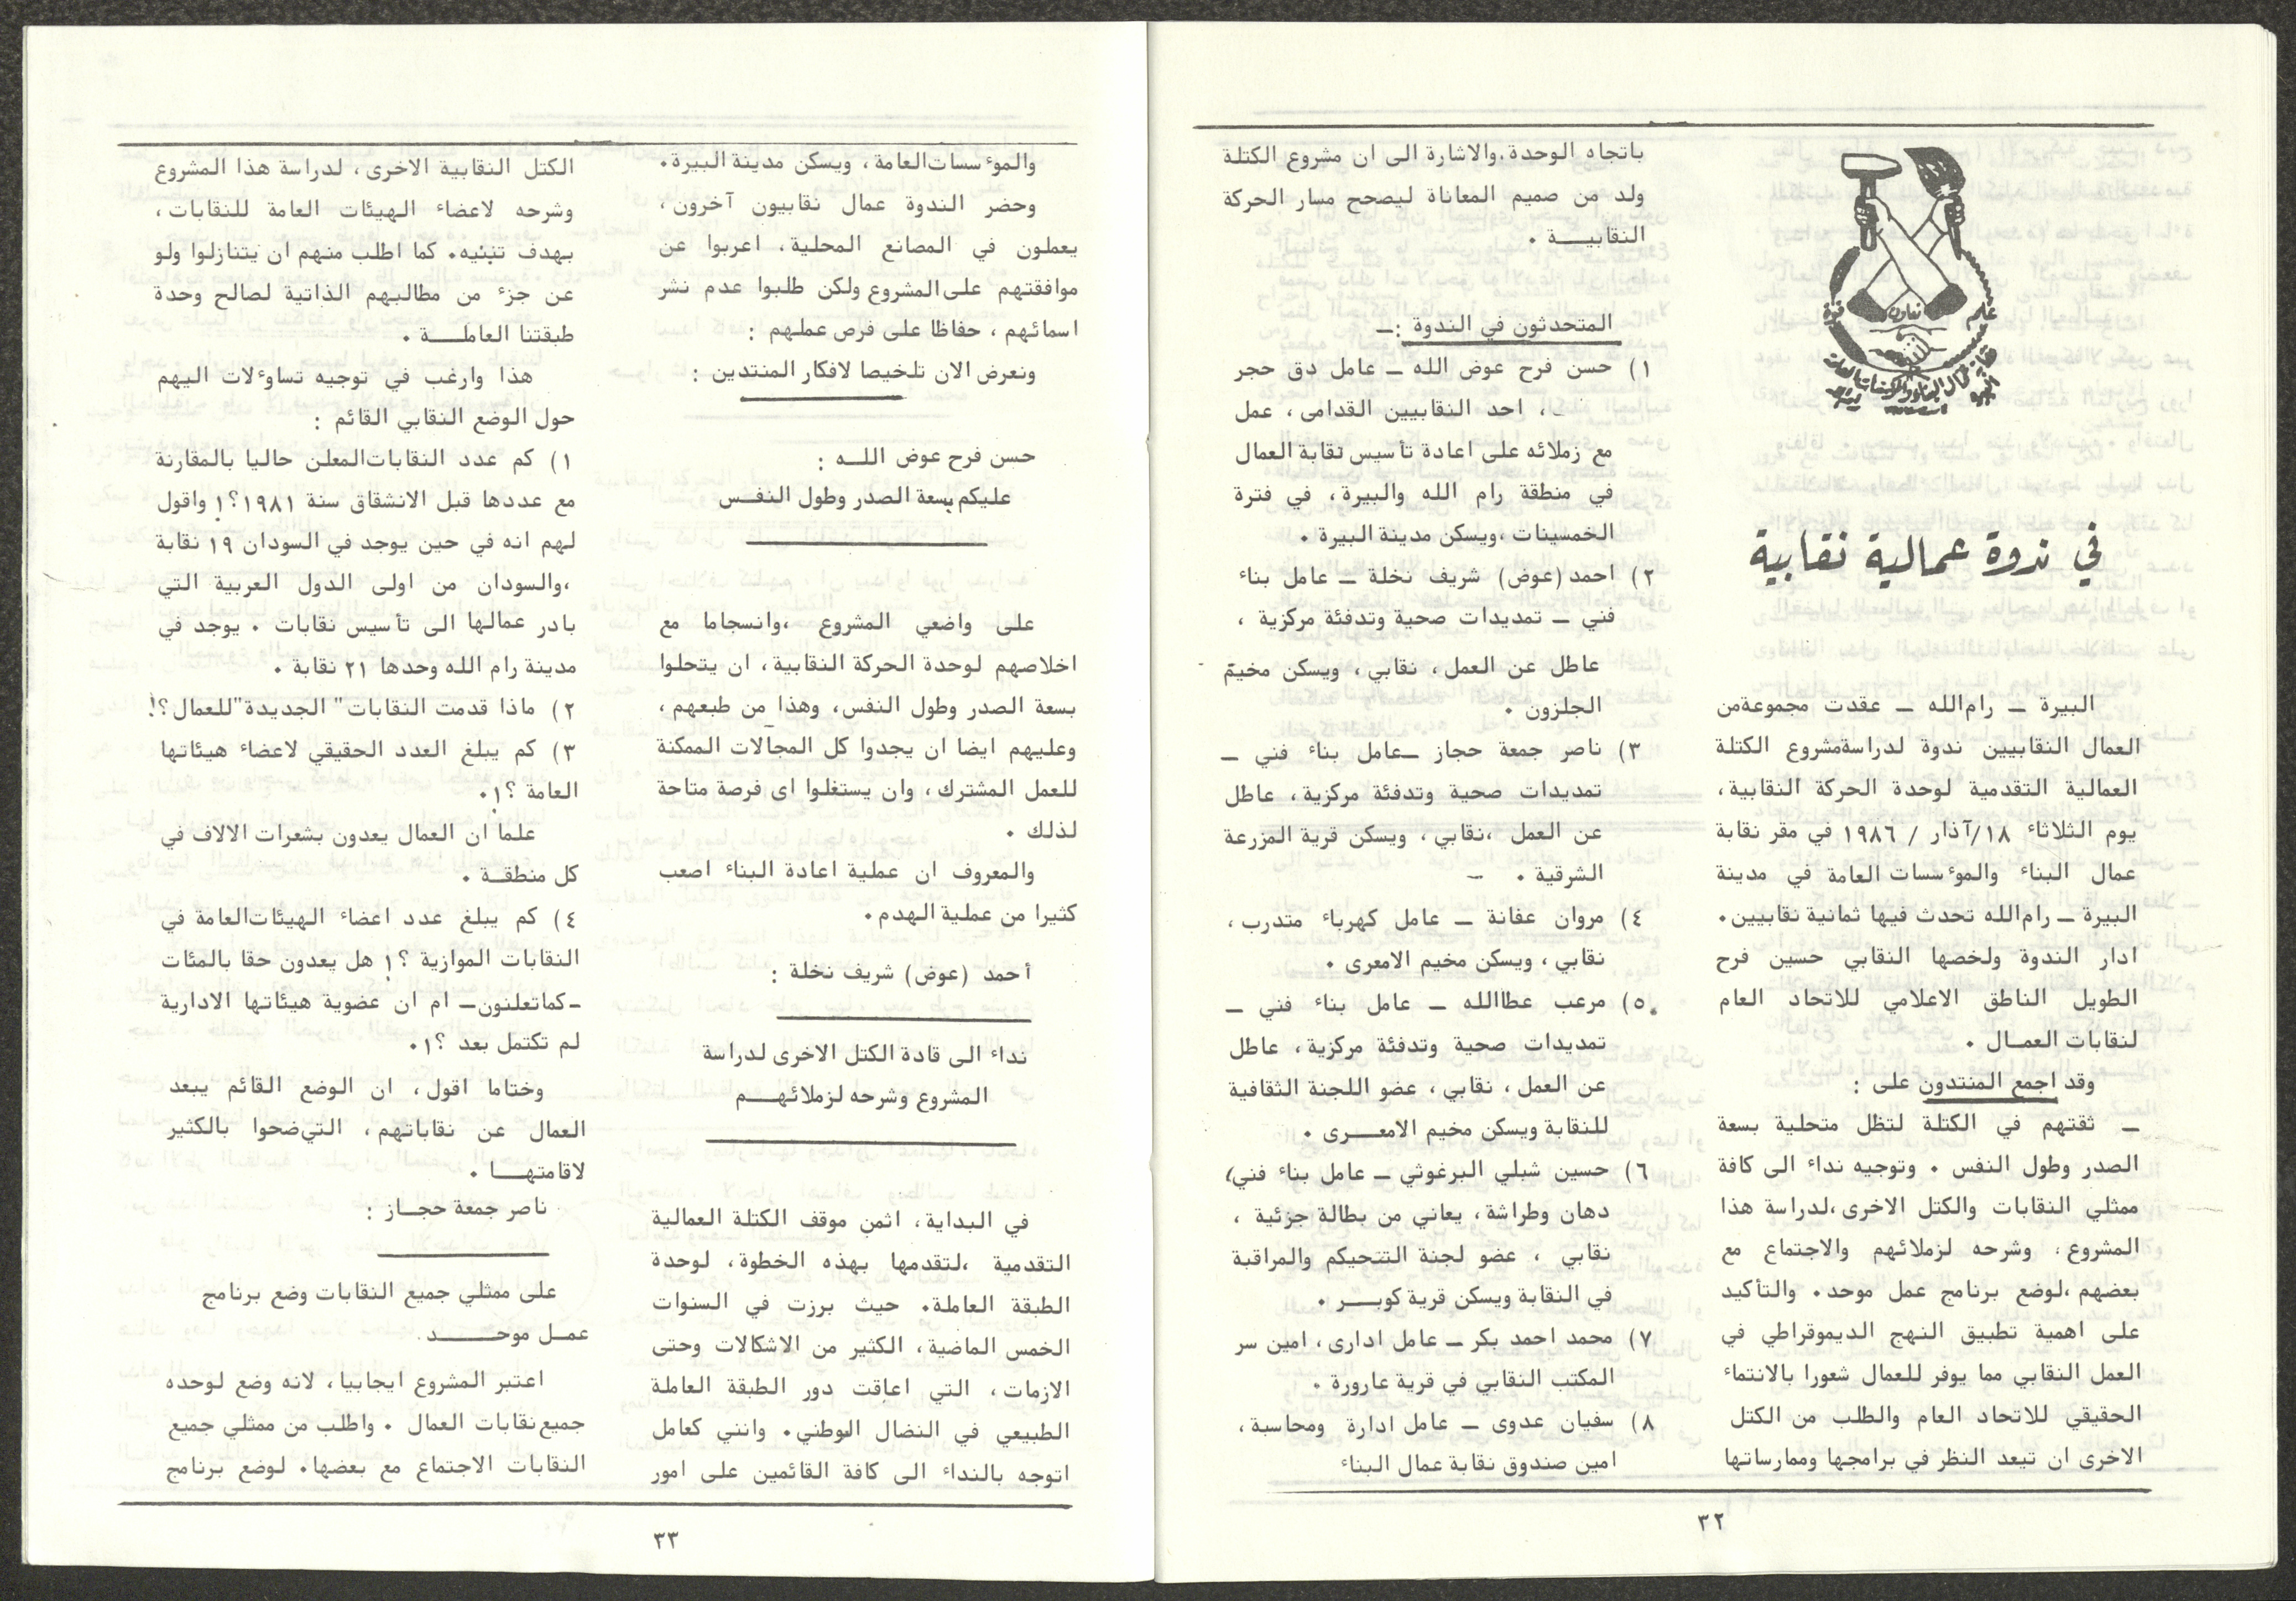 في ندوة عمالية نقابية
البيرة ــ رام الله ــ عقدت مجموعة من
العمال النقابيين ندوة لدراسة مشروع الكتلة
العمالية التقدمية لوحدة الحركة النقابية،
يوم الثلاثاء ١٨/آذار / ١٩٨٦ في مقر نقابة
عمال البناء والموءسسات العامة في مدينة
البيرة ــ رام الله تحدث فيها ثمانية نقابيين.
ادار الندوة ولخصها النقابي حسين فرح
الطويل الناطق الاعلامي للاتحاد العام
لنقابات العمـال .
وقد اجمع المنتدون على :
ــ ثقتهم في الكتلة لتظل متحلية بسعة
الصدر وطول النفس . وتوجيه نداء الى كافة
ممثلي النقابات والكتل الاخرى ،لدراسة هذا
المشروع ، وشرحه لزملائهم والاجتماع مع
بعضهم ،لوضع برنامج عمل موحد. والتأكيد
على اهمية تطبيق النهج الديموقراطي في
العمل النقابي مما يوفر للعمال شعورا بالانتماء
الحقيقي للاتحاد العام والطلب من الكتل
الاخرى ان تيعد النظر في برامجها وممارساتها
باتجاه الوحدة.والاشارة الى ان مشروع الكتلة
ولد من صميم المعاناة ليصحح مسار الحركة
النقابيـــة .
المتحدثون في الندوة :ــ
١) حسن فرح عوض الله ــ عامل دق حجر
، احد النقابيين القدامى، عمل
مع زملائه على اعادة تأسيس نقابة العمال
في منطقة رام الله والبيرة، في فترة
الخمسينات ،ويسكن مدينة البيرة .
٢) احمد (عوض) شريف نخلة ــ عامل بناء
فني ــ تمديدات صحية وتدفئة مركزية ،
عاطل عن العمل، نقابي، ويسكن مخيمّ
الجلزون .
٣) ناصر جمعة حجاز ــعامل بناء فني ــ
تمديدات صحية وتدفئة مركزية، عاطل
عن العمل ،نقابي، ويسكن قرية المزرعة
الشرقية .
٤) مروان عفانة ــ عامل كهرباء متدرب،
نقابي، ويسكن مخيم الامعرى .
٥) مرعب عطاالله ــ عامل بناء فني ــ
تمديدات صحية وتدفئة مركزية، عاطل
عن العمل، نقابي، عضو اللجنة الثقافية
للنقابة ويسكن مخيم الامعـــرى .
٦) حسين شبلي البرغوثي ــ عامل بناء فني،
دهان وطراشة، يعاني من بطالة جزئية ،
نقابي ، عضو لجنة التتحيكم والمراقبة
في النقابة ويسكن قرية كوبـــر .
٧) محمد احمد بكر ــ عامل ادارى، امين سر
المكتب النقابي في قرية عارورة .
٨) سفيان عدوى ــ عامل ادارة ومحاسبة،
امين صندوق نقابة عمال البناء
٣٢
والموءسسات العامة، ويسكن مدينة البيرة.
وحضر الندوة عمال نقابيون آخرون،
يعملون في المصانع المحلية، اعربوا عن
موافقتهم على المشروع ولكن طلبوا عدم نشر
اسمائهم، حفاظا على فرص عملهم :
ونعرض الان تلخيصا لافكار المنتدين :
حسن فرح عوض اللــه :
عليكم بسعة الصدر وطول النفــس
على واضعي المشروع ،وانسجاما مع
اخلاصهم لوحدة الحركة النقابية، ان يتحلوا
بسعة الصدر وطول النفس، وهذا من طبعهم،
وعليهم ايضا ان يجدوا كل المجالات الممكنة
للعمل المشترك، وان يستغلوا اى فرصة متاحة
لذلك .
والمعروف ان عملية اعادة البناء اصعب
كثيرا من عملية الهدم.
أحمد (عوض) شريف نخلة :
نداء الى قادة الكتل الاخرى لدراسة
المشروع وشرحه لزملائهـــم
في البداية، اثمن موقف الكتلة العمالية
التقدمية ،لتقدمها بهذه الخطوة، لوحدة
الطبقة العاملة. حيث برزت في السنوات
الخمس الماضية، الكثير من الاشكالات وحتى
الازمات، التي اعاقت دور الطبقة العاملة
الطبيعي في النضال الوطني. وانني كعامل
اتوجه بالنداء الى كافة القائمين على امور
الكتل النقابية الاخرى، لدراسة هذا المشروع
وشرحه لاعضاء الهيئات العامة للنقابات،
بهدف تبنيه. كما اطلب منهم ان يتنازلوا ولو
عن جزء من مطالبهم الذاتية لصالح وحدة
طبقتنا العاملـــة .
هذا وارغب في توجيه تساوءلات اليهم
حول الوضع النقابي القائم :
١) كم عدد النقابات المعلن حاليا بالمقارنة
مع عددها قبل الانشقاق سنة ١٩٨١؟! واقول
لهم انه في حين يوجد في السودان ١٩ نقابة
،والسودان من اولى الدول العربية التي
بادر عمالها الى تأسيس نقابات . يوجد في
مدينة رام الله وحدها ٢١ نقابة .
٢) ماذا قدمت النقابات" الجديدة"للعمال؟!
٣) كم يبلغ العدد الحقيقي لاعضاء هيئاتها
العامة ؟!.
علما ان العمال يعدون بشعرات الالاف في
كل منطقــة .
٤) كم يبلغ عدد اعضاء الهيئات العامة في
النقابات الموازية ؟! هل يعدون حقا بالمئات
-كما تعلنون- ام ان عضوية هيئاتها الادارية
لم تكتمل بعد ؟!.
وختاما اقول، ان الوضع القائم يبعد
العمال عن نقاباتهم، التي ضحوا بالكثير
لاقامتهـــا .
ناصر جمعة حجــاز :
على ممثلي جميع النقابات وضع برنامج
عمــل موحــــد
اعتبر المشروع ايجابيا، لانه وضع لوحده
جميع نقابات العمال . واطلب من ممثلي جميع
النقابات الاجتماع مع بعضها. لوضع برنامج
٣٣